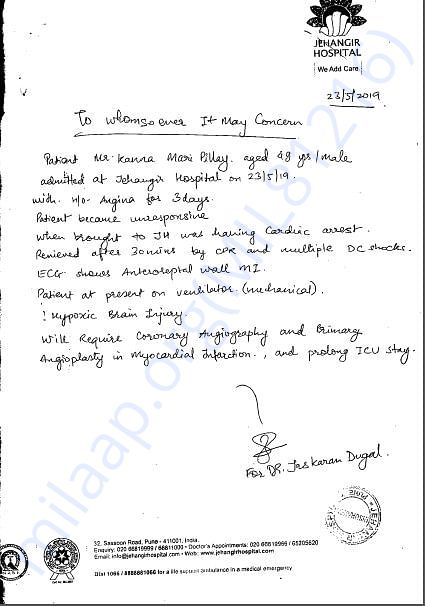 JEHANGIR
HOSPITAL
We Add Care
23/5/2019
To whomsoever It May Concern
Patient Mr. Kanna Mari Pillay. aged 48 yrs/male
admitted at Jehangir Hospital on 23/5/19.
with H/O Angina for 3 days.
Patient became unresponsive
when brought to JH was having Cardiac arrest.
Revieved after 30 mins by CPR and multiple DC shocks.
ECG shows Anteroseptal wall MI.
Patient at present on ventilator (mechanical).
? Hypoxic Brain Injury.
Will Require Coronary Angiography and Primary
Angioplasty in Myocardial Infarction., and prolong ICU stay.
For DR. Jaskaran Dugal.
32, Sassoon Road, Pune - 411001, India.
Enquiry: 020 66819999 / 66811000 • Doctor's Appointments: 020 66819999 / 65205620
Email: info@jehangirhospital.com • Web: www.jehangirhospital.com
Dial 1066 / 8888661066 for a life support ambulance in a medical emergency
milaap.org